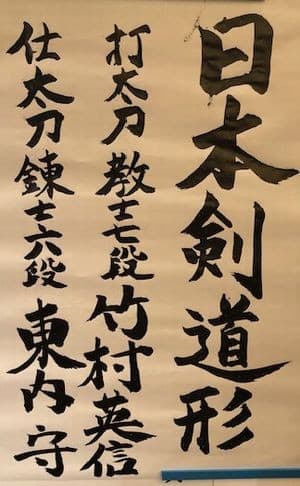 日本剣道形
打太刀 教士七段 竹村英信
仕太刀 錬士六段 東内守